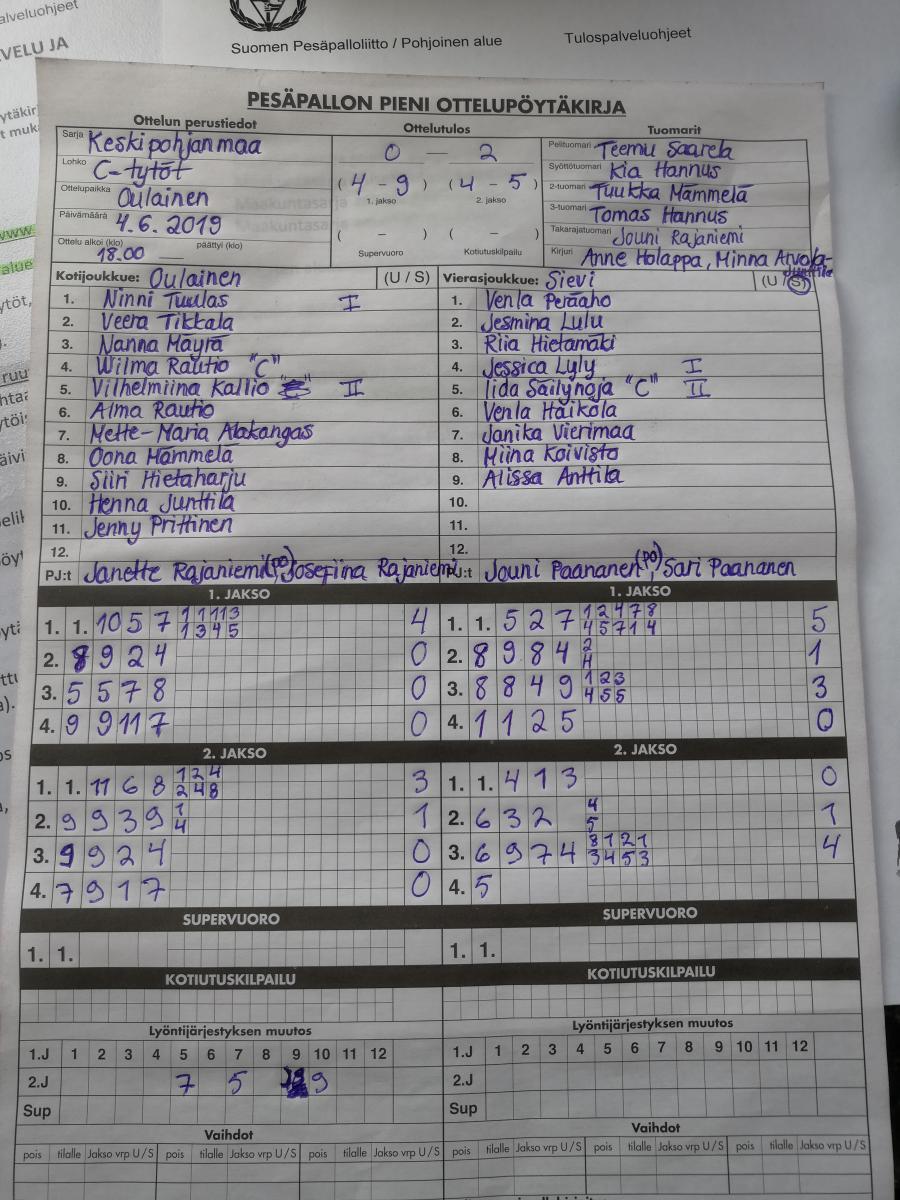 alveluohjeet
VELU JA
Suomen Pesäpalloliitto / Pohjoinen alue
Tulospalveluohjeet
PESÄPALLON PIENI OTTELUPÖYTÄKIRJA
Ottelun perustiedot Ottelutulos Tuomarit
Sarja Keskipohjanmaa
Lohko C-tytöt
Ottelupaikka Oulainen
Päivämäärä 4.6.2019
Ottelu alkoi (klo) päättyi (klo)
18.00 —
0 — 2
( 4 - 9 ) ( 4 - 5 )
1. jakso 2. jakso
( - ) ( - )
Supervuoro Kotiutuskilpailu
Pelituomari Teemu Saarela
Syöttötuomari Kia Hannus
2-tuomari Tuukka Mämmelä
3-tuomari Tomas Hannus
Takarajatuomari Jouni Rajaniemi
Kirjuri Anne Holappa, Minna Arvola-
Junttila
Kotijoukkue: Oulainen (U / S)
1. Ninni Tuulas I
2. Veera Tikkala
3. Nanna Mäyrä
4. Wilma Rautio "C"
5. Vilhelmiina Kallio II
6. Alma Rautio
7. Mette-Maria Alakangas
8. Oona Mämmelä
9. Siiri Hietaharju
10. Henna Junttila
11. Jenny Prittinen
12.
PJ:t Janette Rajaniemi(PO), Josefiina Rajaniemi
Vierasjoukkue: Sievi (U / S)
1. Venla Peräaho
2. Jesmina Lulu
3. Riia Hietamäki
4. Jessica Lyly I
5. Iida Säilynoja "C" II
6. Venla Haikola
7. Janika Vierimaa
8. Miina Koivisto
9. Alissa Anttila
10.
11.
12.
PJ:t Jouni Paananen(PO), Sari Paananen
1. JAKSO
1. 1. 10 5 7 1 1 11 3 4
1 3 4 5
2. 8 9 2 4 0
3. 5 5 7 8 0
4. 9 9 11 7 0
1. JAKSO
1. 1. 5 2 7 1 2 4 7 8 5
4 5 7 1 4
2. 8 9 8 4 2 1
4
3. 8 8 4 9 1 2 3 3
4 5 5
4. 1 1 2 5 0
2. JAKSO
1. 1. 11 6 8 1 2 4 3
2 4 8
2. 9 9 3 9 1 1
4
3. 9 9 2 4 0
4. 7 9 1 7 0
2. JAKSO
1. 1. 4 1 3 0
2. 6 3 2 4 1
5
3. 6 9 7 4 8 1 2 1 4
3 4 5 3
4. 5
SUPERVUORO
1. 1.
SUPERVUORO
1. 1.
KOTIUTUSKILPAILU
KOTIUTUSKILPAILU
Lyöntijärjestyksen muutos
1.J 1 2 3 4 5 6 7 8 9 10 11 12
2.J 7 5 9
Sup
Lyöntijärjestyksen muutos
1.J 1 2 3 4 5 6 7 8 9 10 11 12
2.J
Sup
Vaihdot
pois tilalle Jakso vrp U / S pois tilalle Jakso vrp U / S pois tilalle Jakso vrp U / S
Vaihdot
pois tilalle Jakso vrp U / S pois tilalle Jakso vrp U / S pois tilalle Jakso vrp U / S